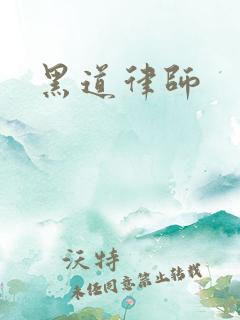 黑道律師
沃特
未经同意禁止转载